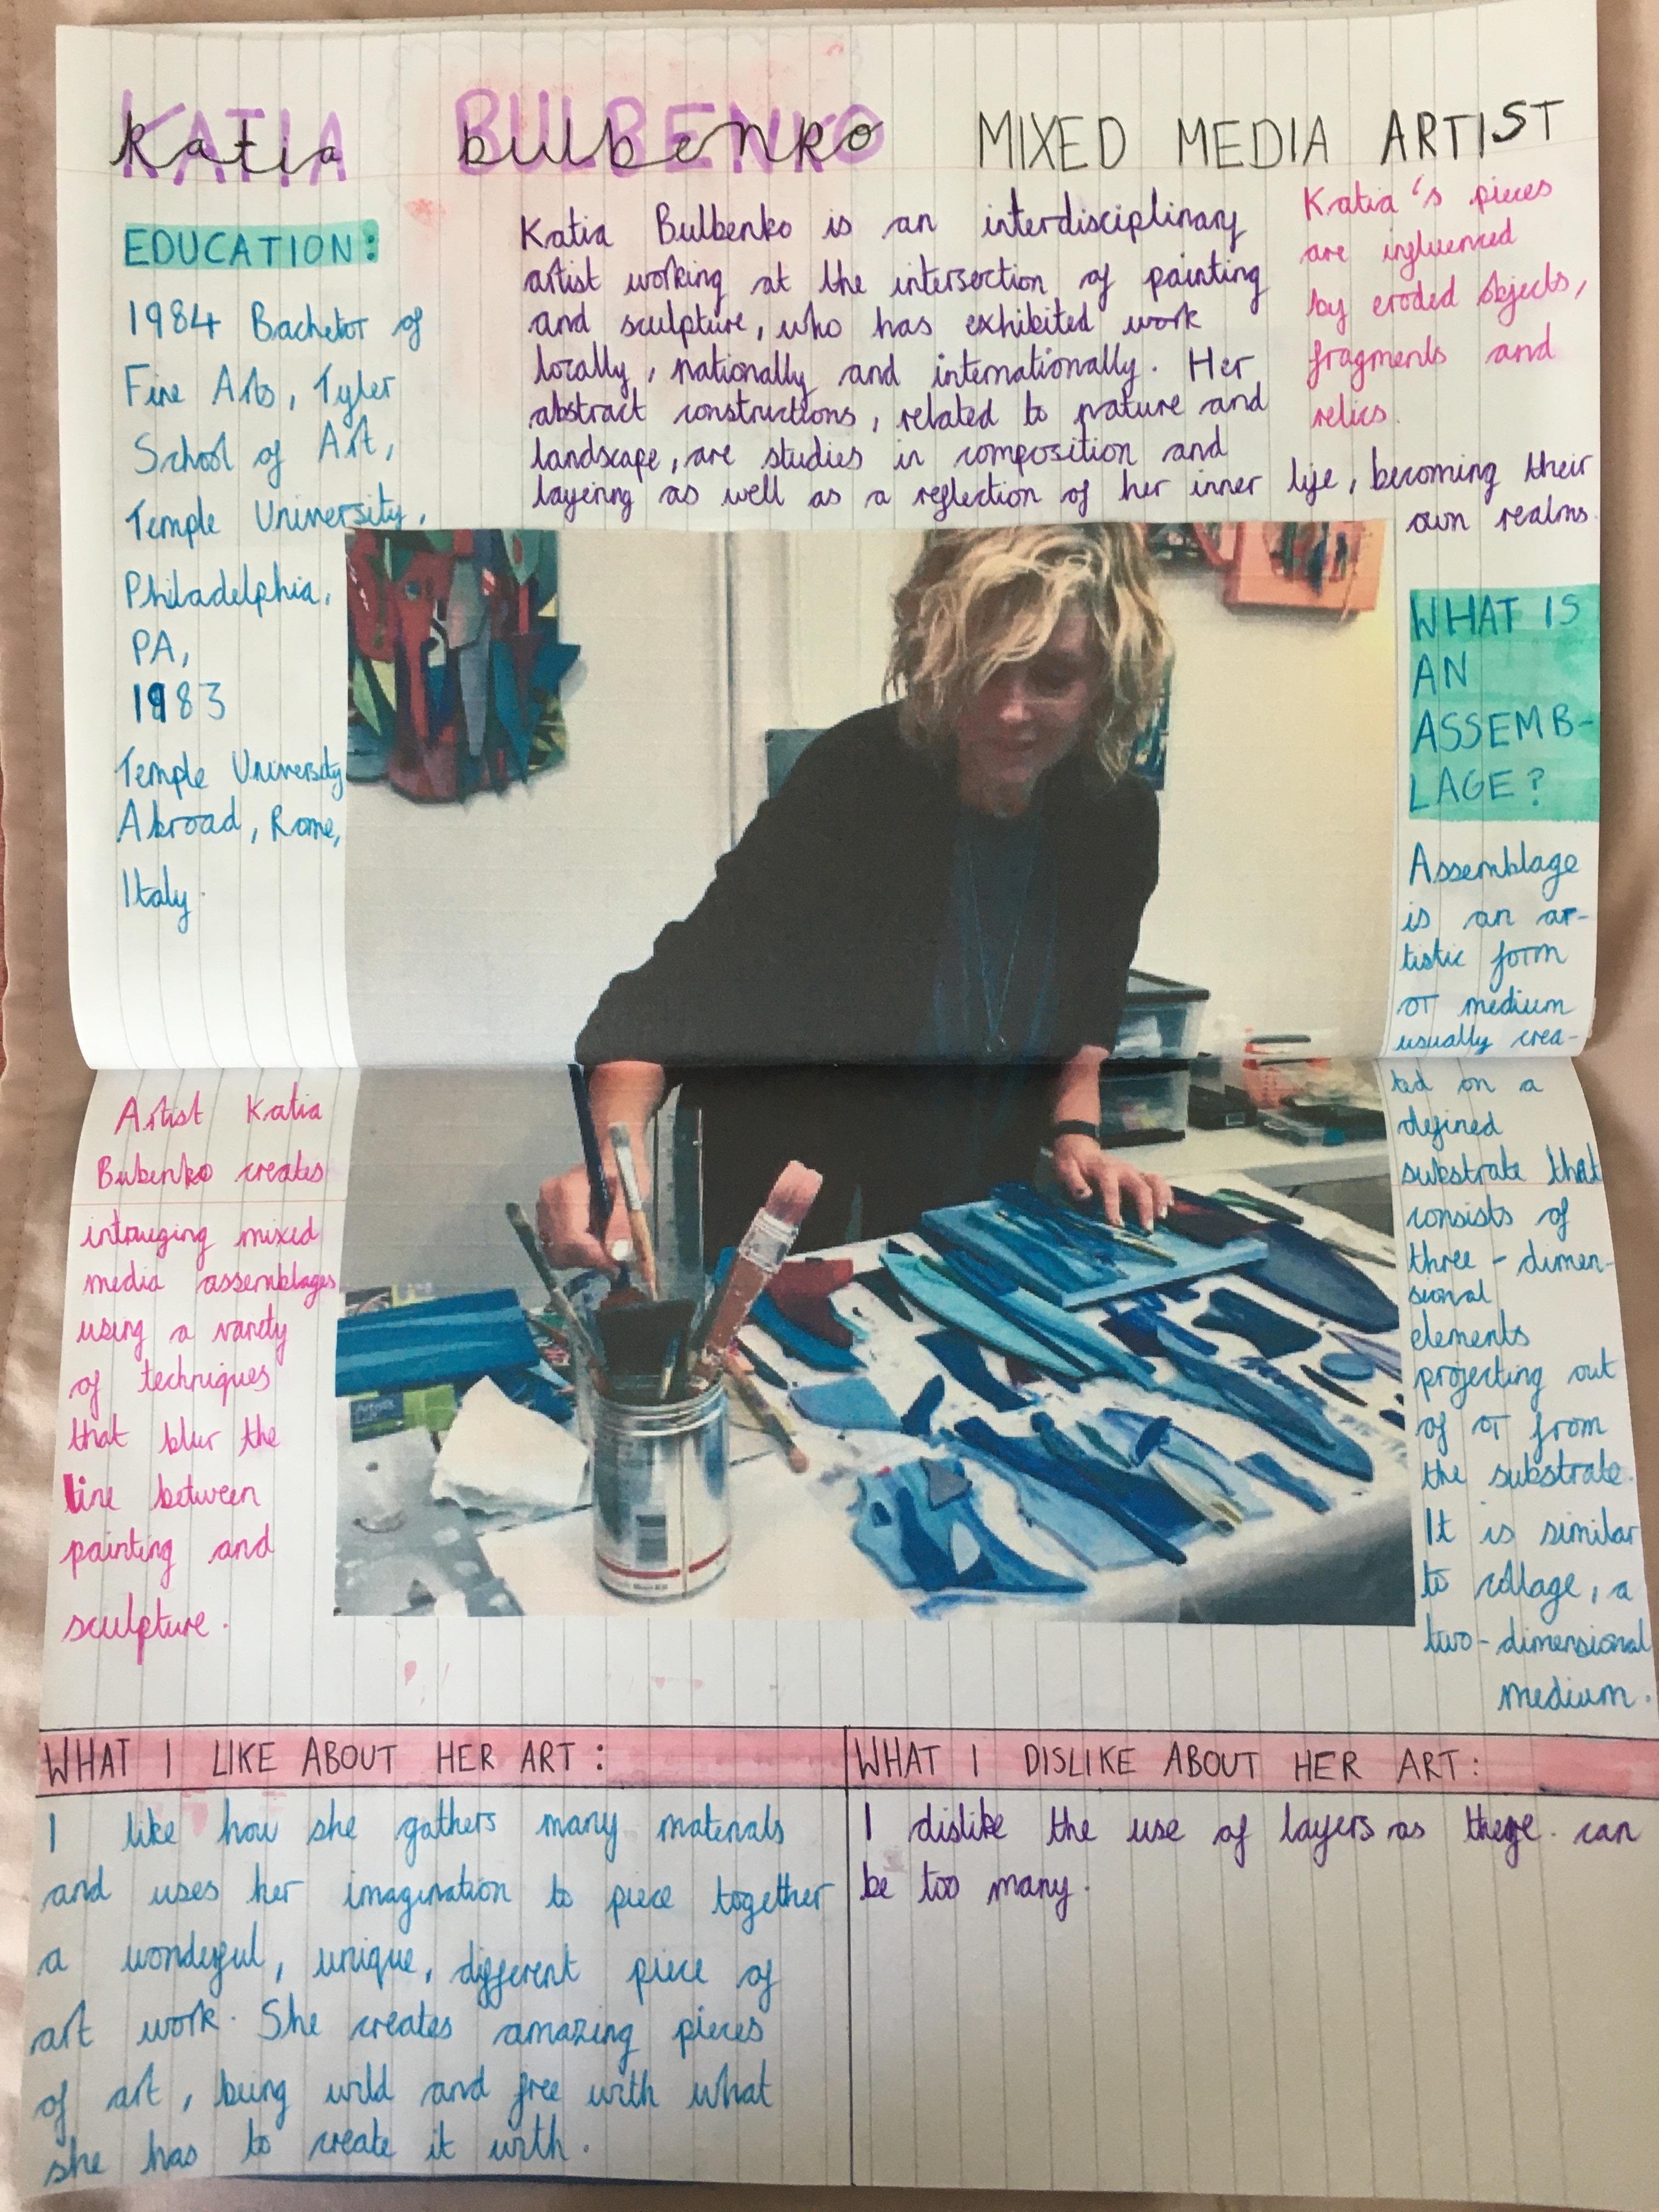 KATIA BULBENKO
katia bulbenko MIXED MEDIA ARTIST
EDUCATION:
1984 Bachelor of
Fine Arts, Tyler
School of Art,
Temple University,
Philadelphia,
PA,
1983
Temple University
Abroad, Rome,
Italy.
Katia Bulbenko is an interdisciplinary
artist working at the intersection of painting
and sculpture, who has exhibited work
locally, nationally and internationally. Her
abstract constructions, related to nature and
landscape, are studies in composition and
layering as well as a reflection of her inner life, becoming their
own realms.
Katia's pieces
are influenced
by eroded objects,
fragments and
relics.
WHAT IS
AN
ASSEMB-
LAGE?
Assemblage
is an ar-
tistic form
or medium
usually crea-
ted on a
defined
substrate that
consists of
three-dimen-
sional
elements
projecting out
of or from
the substrate.
It is similar
to collage, a
two-dimensional
medium.
Artist Katia
Bubenko creates
intrueging mixed
media assemblages
using a variety
of techniques
that blur the
line between
painting and
sculpture.
WHAT I LIKE ABOUT HER ART:
I like how she gathers many materials
and uses her imagination to piece together
a wonderful, unique, different piece of
art work. She creates amazing pieces
of art, being wild and free with what
she has to create it with.
WHAT I DISLIKE ABOUT HER ART:
I dislike the use of layers as there can
be too many.